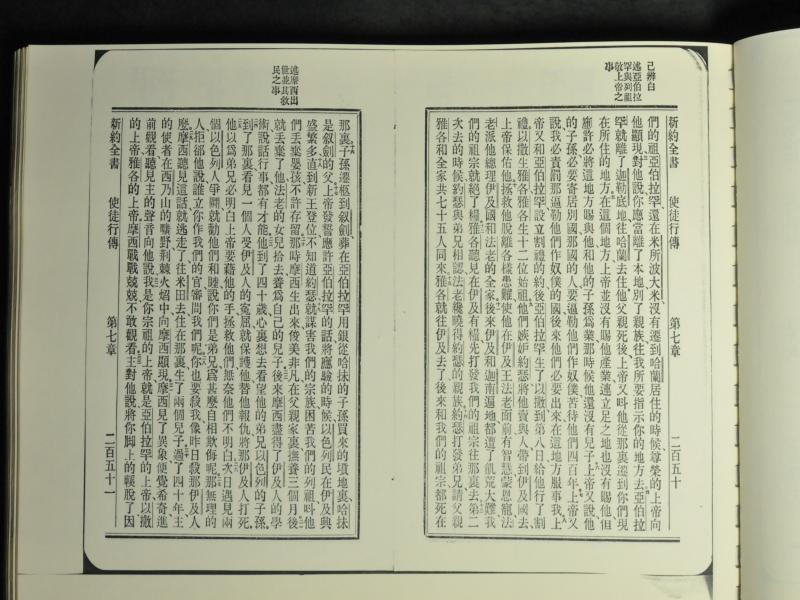 己辨白
述亞伯拉
罕與列祖
敬上帝之
事
新約全書　使徒行傳　第七章　二百五十
們的祖亞伯拉罕還在米所波大米沒有遷到哈蘭居住的時候尊榮的上帝向
他顯現對他說你應當離了本地別了親族往我所要指示你的地方去亞伯拉
罕就離了迦勒底地往哈蘭去住他父親死後上帝又呌他從那裏遷到你們現
在所住的地方在這個地方上帝並沒有賜他產業連立足之地也沒有賜他但
應許必將這地方賜與他和他的子孫為業那時候他還沒有兒子上帝又說他
的子孫必要寄居別國那國的人要逼勒他們作奴僕苦待他們四百年上帝又
說我必責罰那逼勒他們作奴僕的國後來他們必要出來在這地方服事我上
帝又和亞伯拉罕設立割禮的約後亞伯拉罕生了以撒到第八日給他行了割
禮以撒生雅各雅各生十二位始祖他們嫉妒約瑟將他賣與人帶到伊及國去
上帝保佑他拯救他脫離各樣患難使他在伊及王法老面前有智慧蒙恩寵法
老派他總理伊及國和法老的全家後來伊及和迦南遍地都遭了飢荒大難我
們的祖宗就絕了糧雅各聽見在伊及有糧先打發我們的祖宗往那裏去第二
次去的時候約瑟與弟兄相認法老纔曉得約瑟的親族約瑟打發弟兄請父親
雅各和全家共七十五人同來雅各就往伊及去了後來和我們的祖宗都死在
述摩西出
世並其救
民之事
那裏子孫遷柩到叙劍葬在亞伯拉罕用銀從哈抹的子孫買來的墳地裏哈抹
是叙劍的父上帝發誓應許亞伯拉罕的話將應驗的時候以色列民在伊及興
盛繁多直到新王登位不知道約瑟就謀害我們的宗族困苦我們的列祖呌他
們丟棄嬰孩不許存留那時摩西生出來俊美非凡在父親家裏撫養三個月後
就丟棄了他法老的女兒拾去養為自己的兒子後來摩西盡得了伊及人的學
術說話行事都有才能他到了四十歲心裏想去看望他的弟兄以色列的子孫
到了那裏看見一個人受伊及人的寃屈就保護他替他報仇將那伊及人打死
他以為弟兄必明白上帝要藉他的手拯救他們無奈他們不明白次日遇見兩
個以色列人爭鬭就勸他們和睦說你們是弟兄為甚麼自相欺侮呢那無理的
人拒卻他說誰立你作我們的官審問我們呢你也要殺我像昨日殺那伊及人
麼摩西聽見這話就逃走了往米田去住在那裏生了兩個兒子過了四十年主
的使者在西乃山的曠野荆棘火焰中向摩西顯現摩西見了異象便覺希奇進
前觀看聽見主的聲音向他說我是你宗祖的上帝就是亞伯拉罕的上帝以撒
的上帝雅各的上帝摩西戰戰兢兢不敢觀看主對他說將你脚上的鞵脫了因
新約全書　使徒行傳　第七章　二百五十一